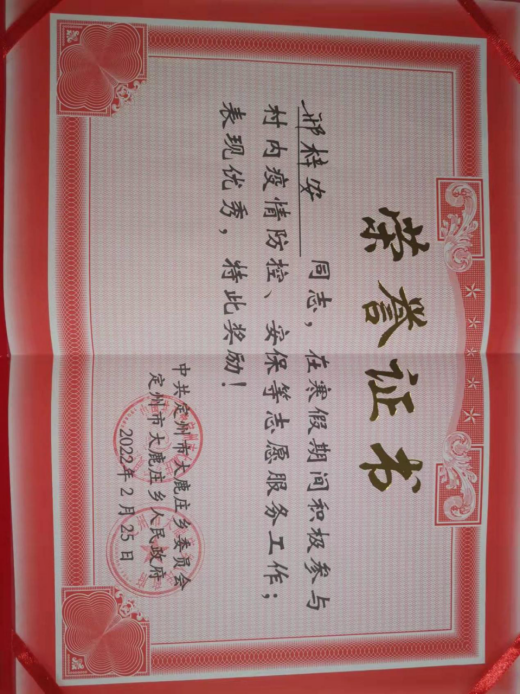 荣誉证书
邢梓安 同志，在寒假期间积极参与
村内疫情防控、安保等志愿服务工作；
表现优秀，特此奖励！
中共定州市大鹿庄乡委员会
定州市大鹿庄乡人民政府
2022年2月25日